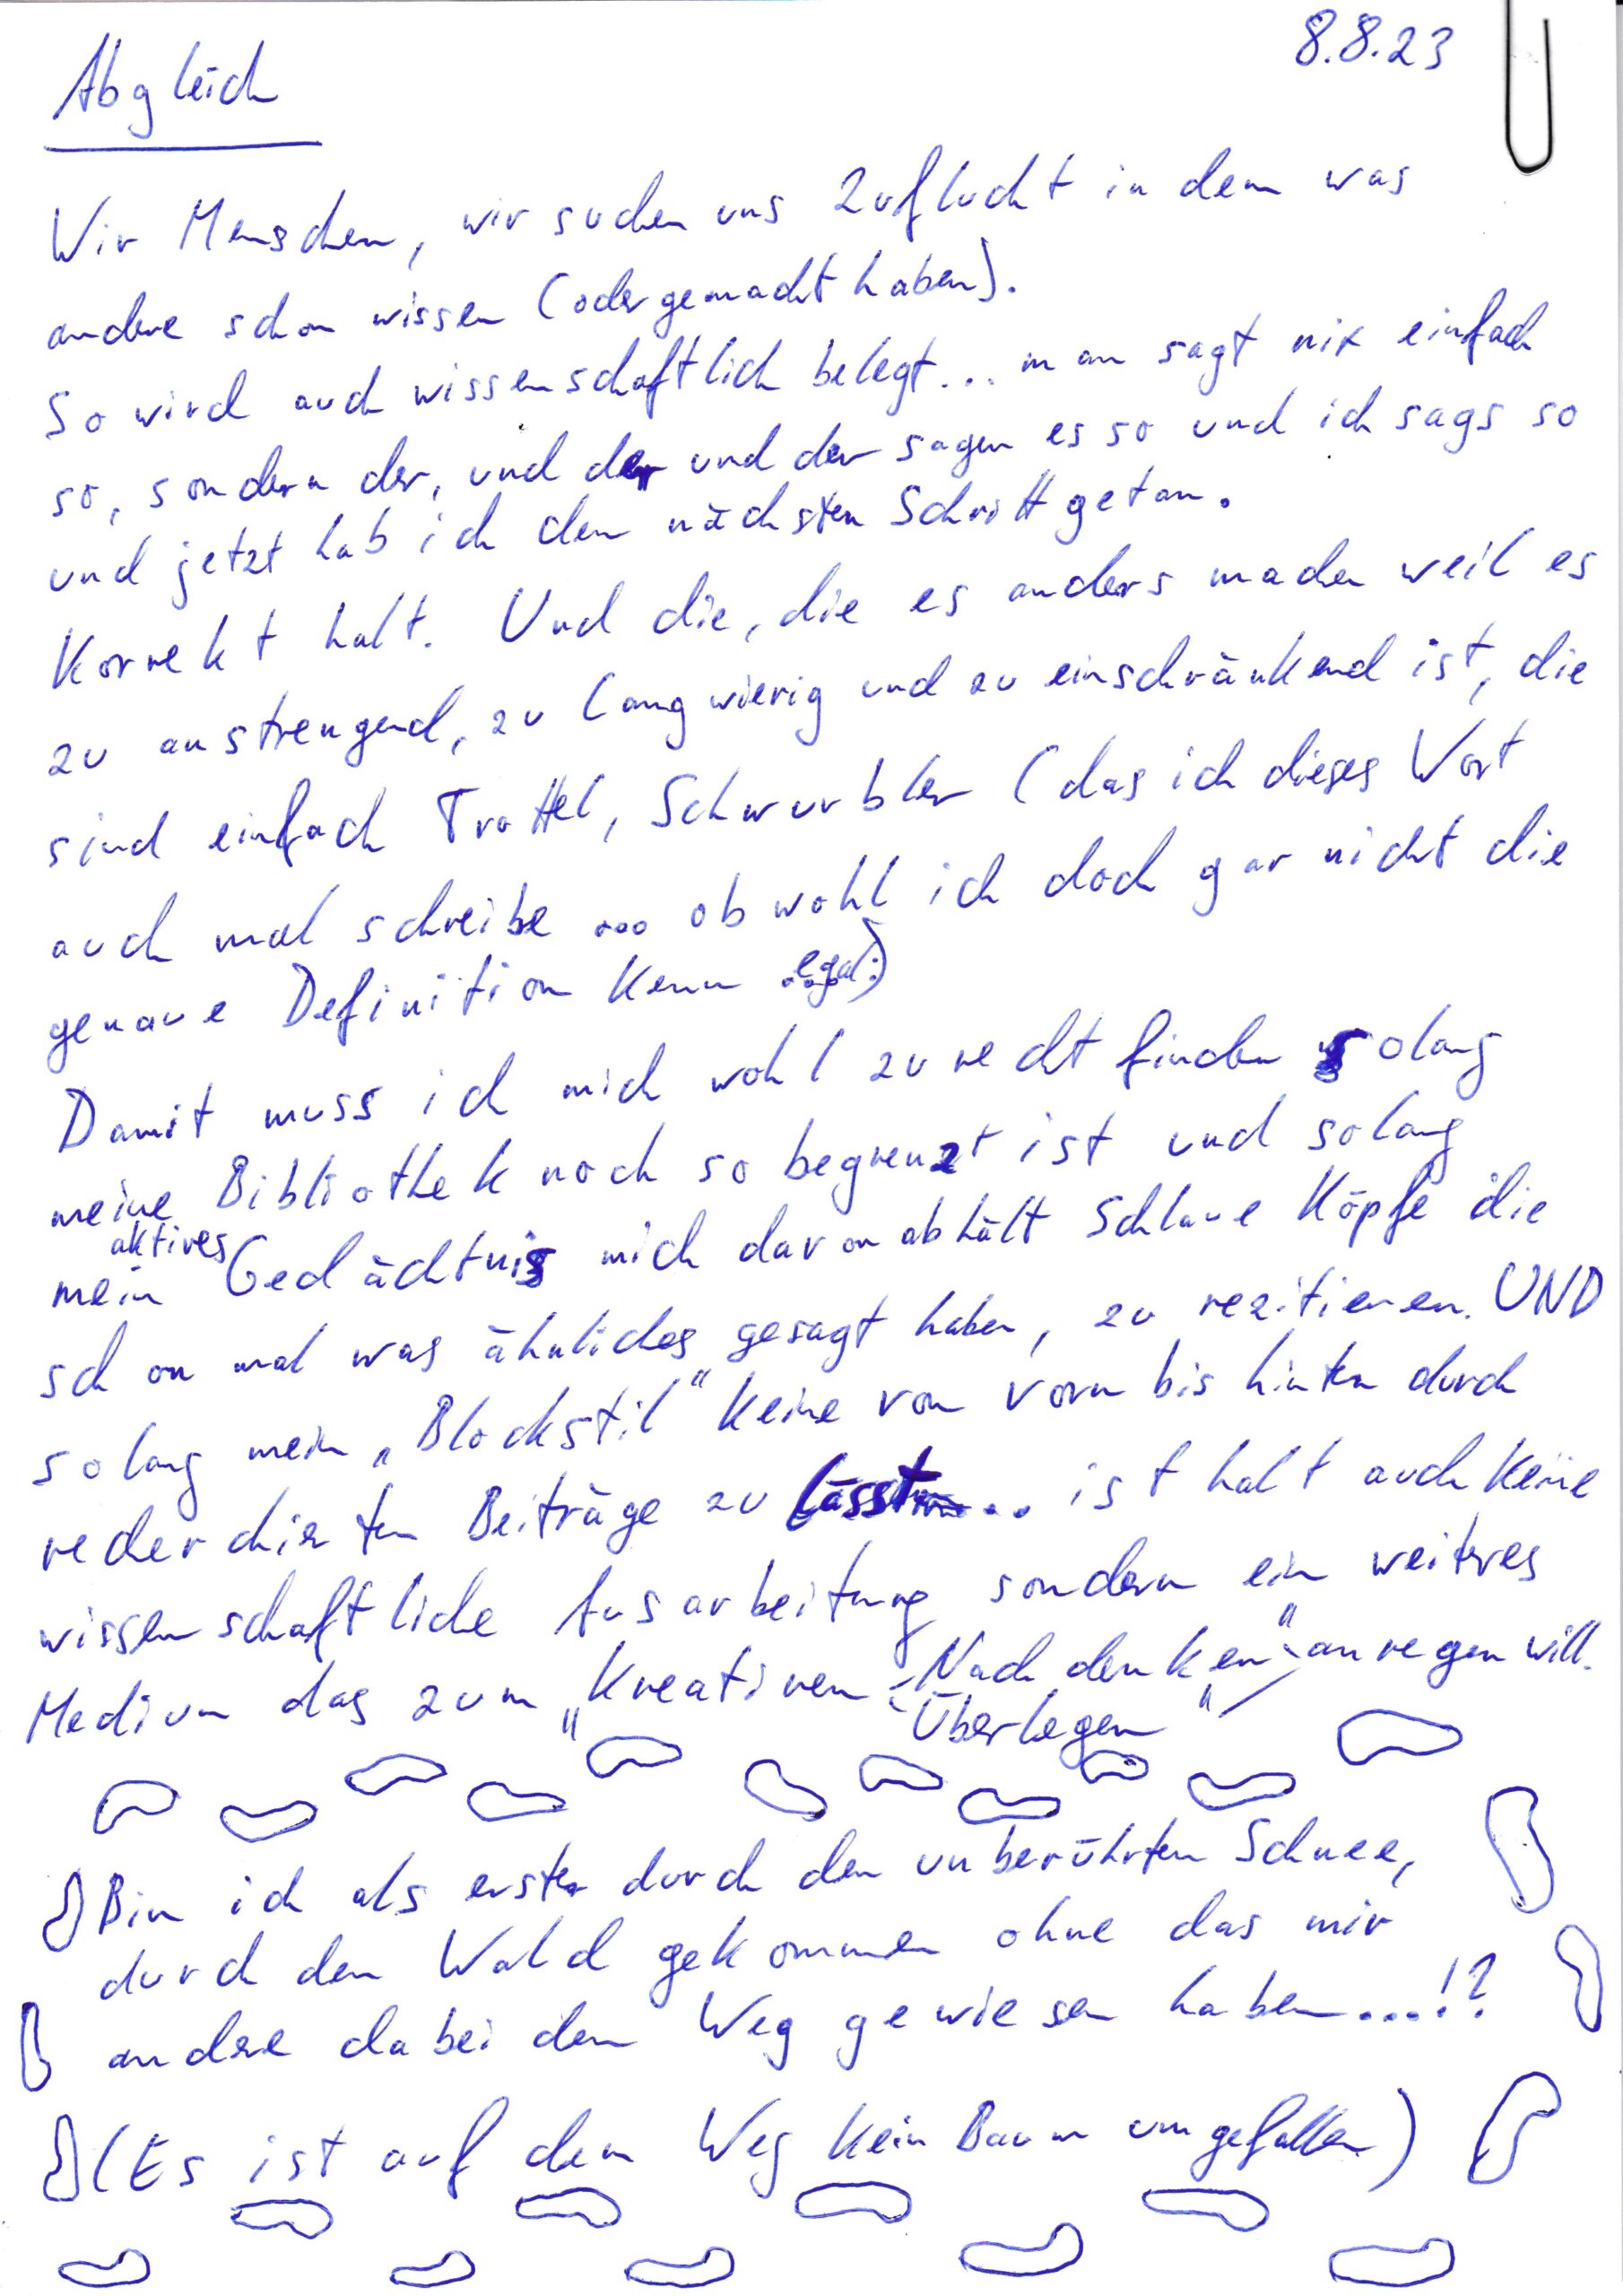 8.8.23
Abgleich
Wir Menschen, wir suchen uns Zuflucht in dem was
andere schon wissen (oder gemacht haben).
So wird auch wissenschaftlich belegt... man sagt nix einfach
so, sondern der, und der und der sagen es so und ich sags so
und jetzt hab ich den nächsten Schritt getan.
Korrekt halt. Und die, die es anders machen weil es
zu anstrengend, zu langwierig und zu einschränkend ist, die
sind einfach Trottel, Schwurbler (das ich dieses Wort
auch mal schreibe ... obwohl ich doch gar nicht die
genaue Definition kenn egal:)
Damit muss ich mich wohl zurecht finden solang
meine Bibliothek noch so begrenzt ist und solang
mein aktives Gedächtnis mich davon abhält schlaue Köpfe die
schon mal was ähnliches gesagt haben, zu rezitieren. UND
solang mein „Blockstil" keine von vorn bis hinten durch
recherchierten Beiträge zu lässt... ist halt auch keine
wissenschaftliche Ausarbeitung sondern ein weiteres
Medium das zum „Kreativen Nachdenken" anregen will.
Überlegen"
Bin ich als erster durch den unberührten Schnee,
durch den Wald gekommen ohne das mir
andere dabei den Weg gewiesen haben...!?
(Es ist auf dem Weg kein Baum umgefallen)